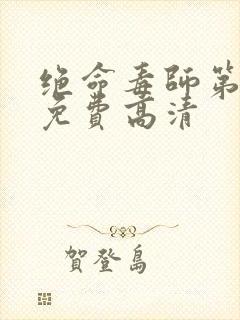 绝命毒师第
免費高清
賀登島